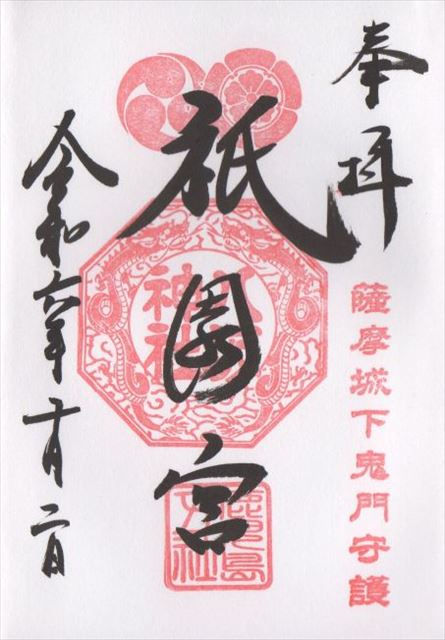 奉拝
薩摩城下鬼門守護
祇園宮
神社
鹿児島
令和六年十月二日